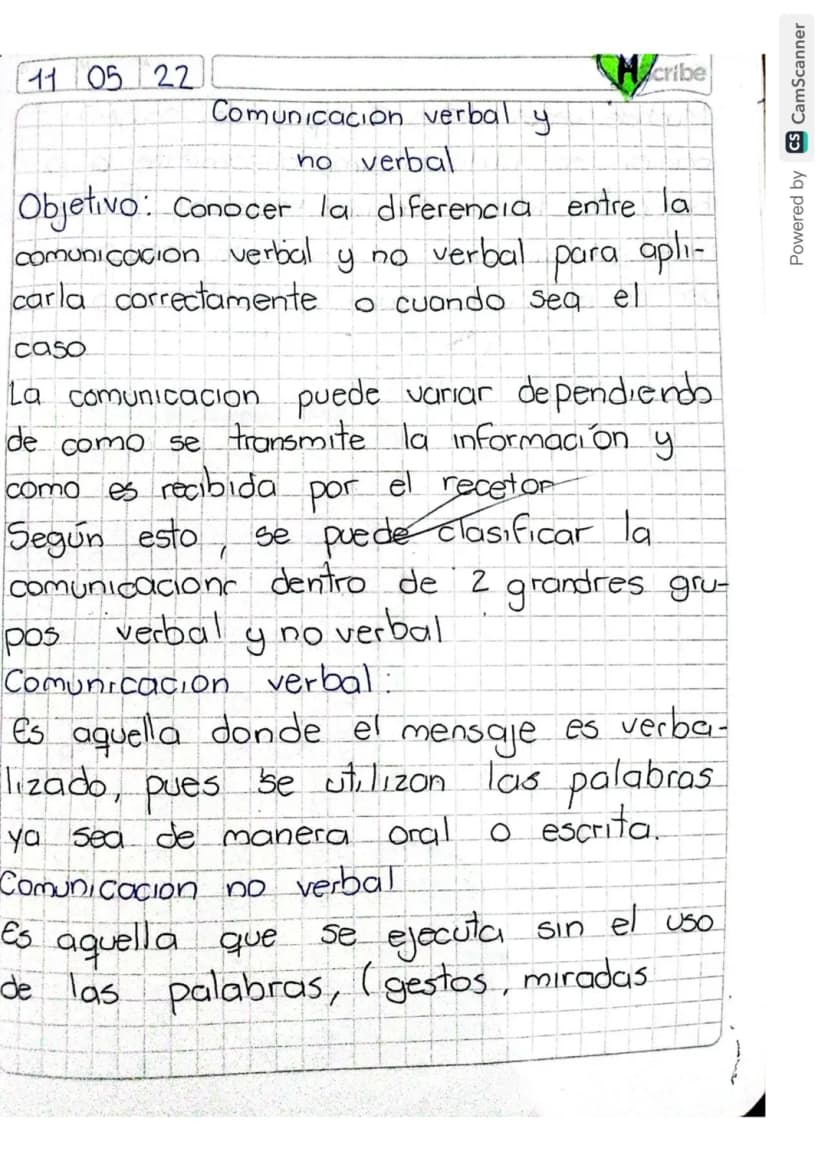 11 05 22
cribe
Comunicacion verbal y
no verbal
Objetivo: Conocer la diferencia entre la
comunicacion verbal y no verbal para apli-
carla correctamente o cuando sea el
caso
La comunicacion puede variar dependiendo
de como se transmite la información y
como es recibida por el recetor
Según esto, se puede clasificar la
comunicacionr dentro de 2 grandres gru-
pos verbal y no verbal
Comunicacion verbal:
Es aquella donde el mensaje es verba-
lizado, pues se utilizan las palabras
ya sea de manera oral o escrita.
Comunicacion no verbal
Es aquella que se ejecuta sin el uso
de las palabras, (gestos, miradas
Powered by CS CamScanner